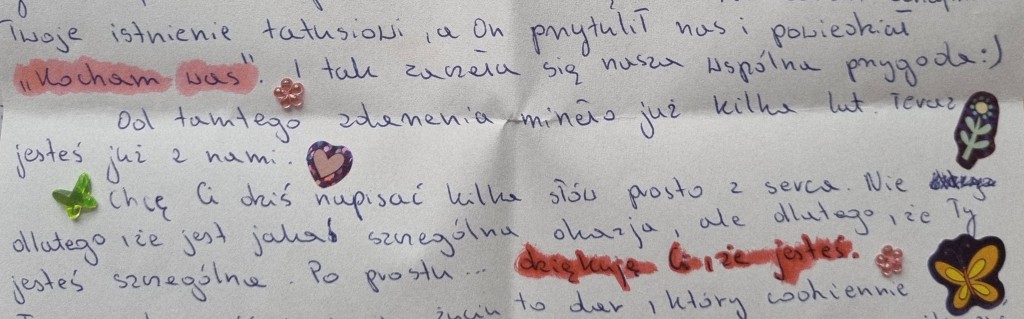 Twoje istnienie tatusiowi, a On przytulił nas i powiedział
„Kocham was". I tak zaczęła się nasza wspólna przygoda :)
Od tamtego zdarzenia minęło już kilka lat. Teraz
jesteś już z nami.
Chcę Ci dziś napisać kilka słów prosto z serca. Nie
dlatego, że jest jakaś szczególna okazja, ale dlatego, że Ty
jesteś szczególna. Po prostu... dziękuję Ci, że jesteś.
to dar, który codziennie